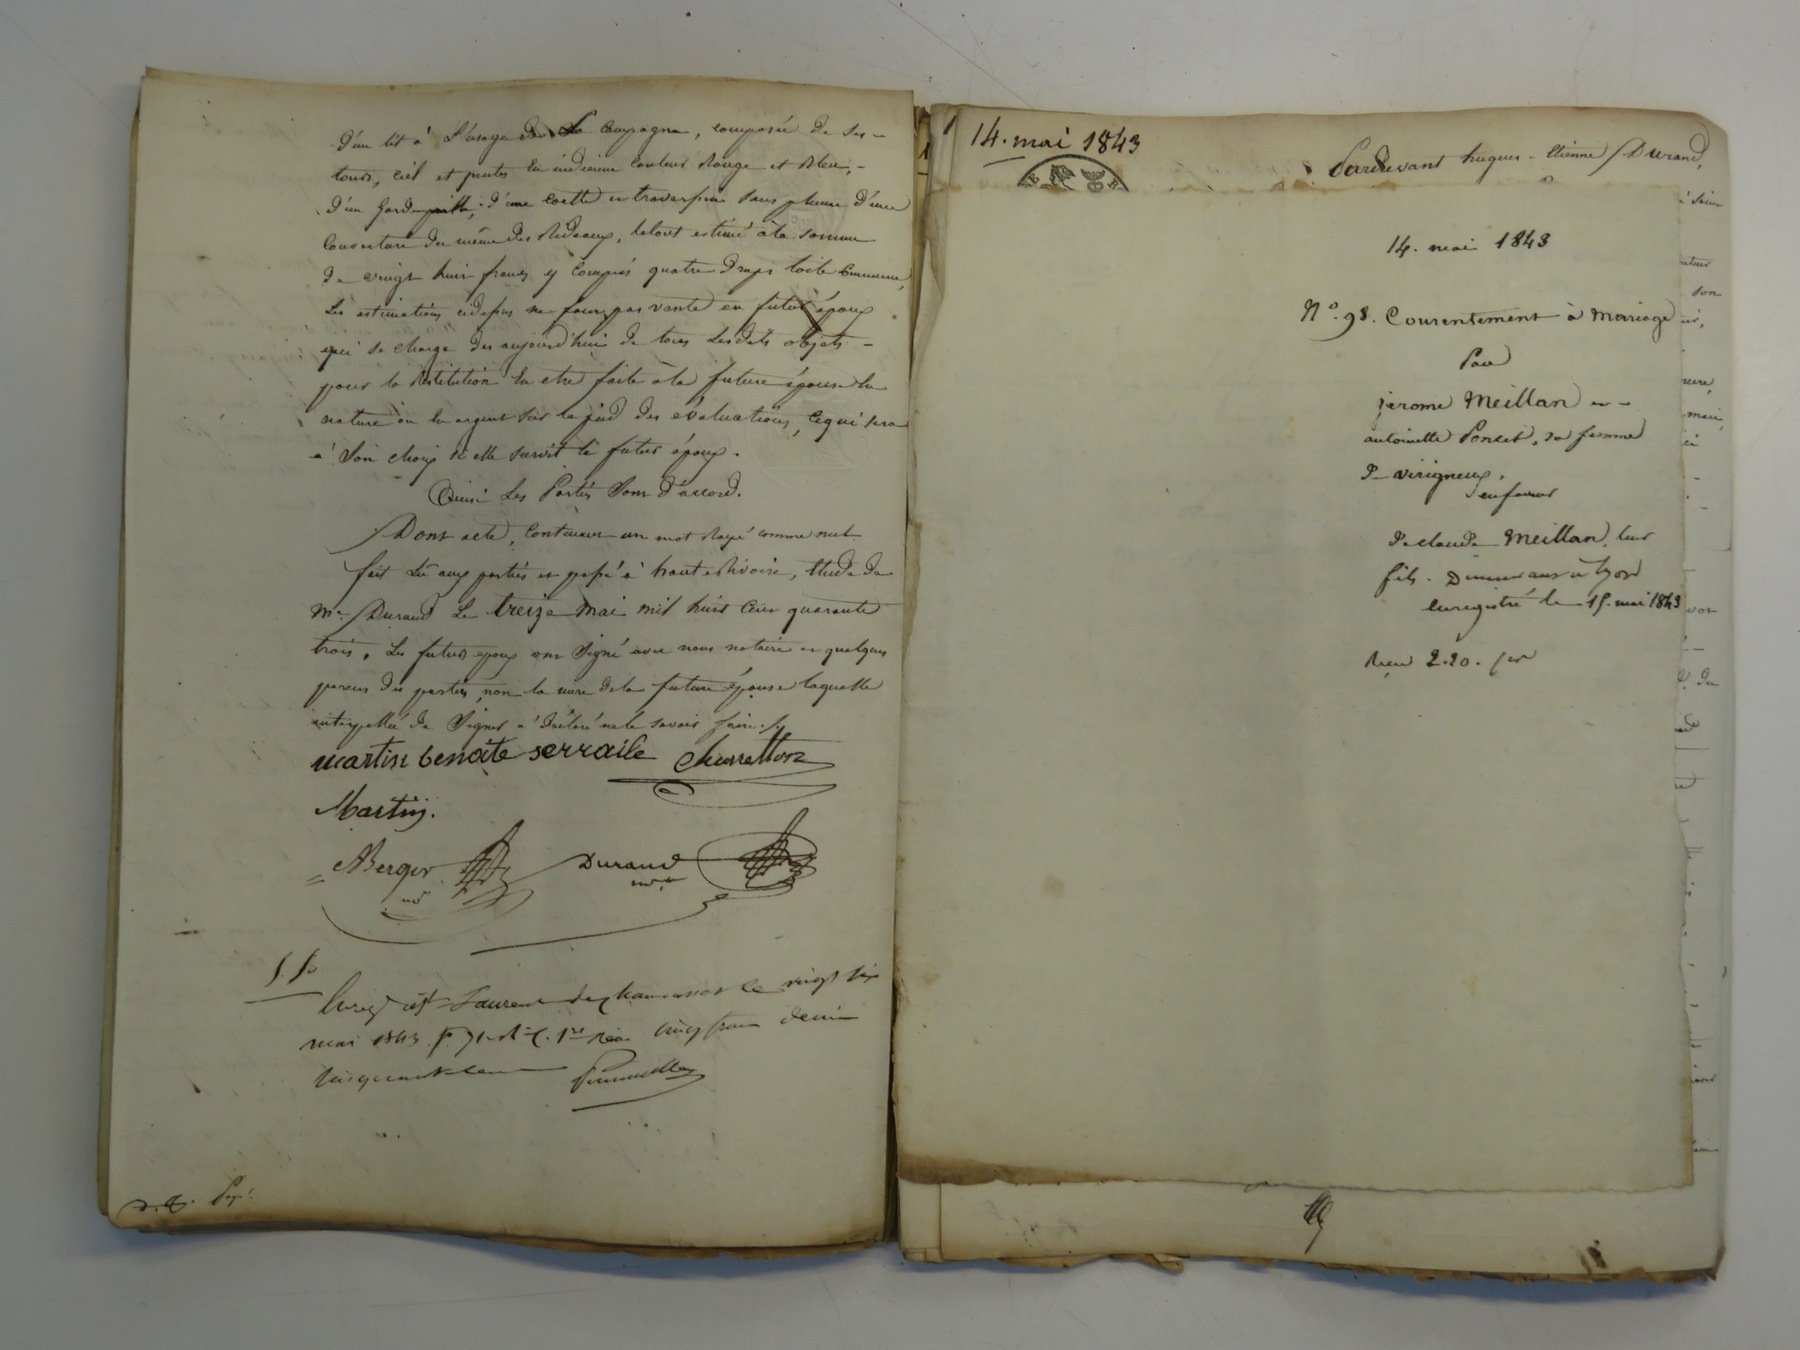 d'un lit à l'usage de la Campagne, composée de ses
tours, ciel et pentes en indienne couleur Rouge et Bleu,
d'un garde paille, d'une coette et traversin sans plume d'une
Couverture du même des Rideaux, le tout estimé à la somme
de vingt huit francs y compris quatre Draps toile Commune,
Les estimations cidessus ne font pas vente au futur époux
qui se charge des aujourd'hui de tous lesdits objets -
pour la Restitution en etre faite à la future épouse en
nature ou en argent sur le pied des évaluations, ce qui sera
à Son choix si elle survit le futur époux.
Ainsi Les Parties Sont d'accord.
Dont acte, Contenant un mot Rayé comme nul
fait Lû aux parties et passé à haute Rivoire, Etude de
Me. Durand Le treize Mai mil huit Cent quarante
trois, Les futurs époux ont Signé avec nous notaire et quelques
parens des parties, non la mere de la future épouse laquelle
interpellée de Signer a déclaré ne le savoir faire.
martin benoite serraile Charretton
Martin.
ABerger Durand
nre
Enreg. à St Laurent de chamousset le vingt six
mai 1843 f. 71 Reçu cinq francs décime
cinquante centimes
14. mai 1843
Pardevant hugues-Etienne Durand,
14. mai 1843
N°. 98. Consentement à mariage
Par
jerome Meillan et -
antoinette Poncet, sa femme
De virigneux,
en faveur
De claude Meillan, leur
fils. Demeurant à Lyon
Enregistré le 15. mai 1843
Reçu 2.20.